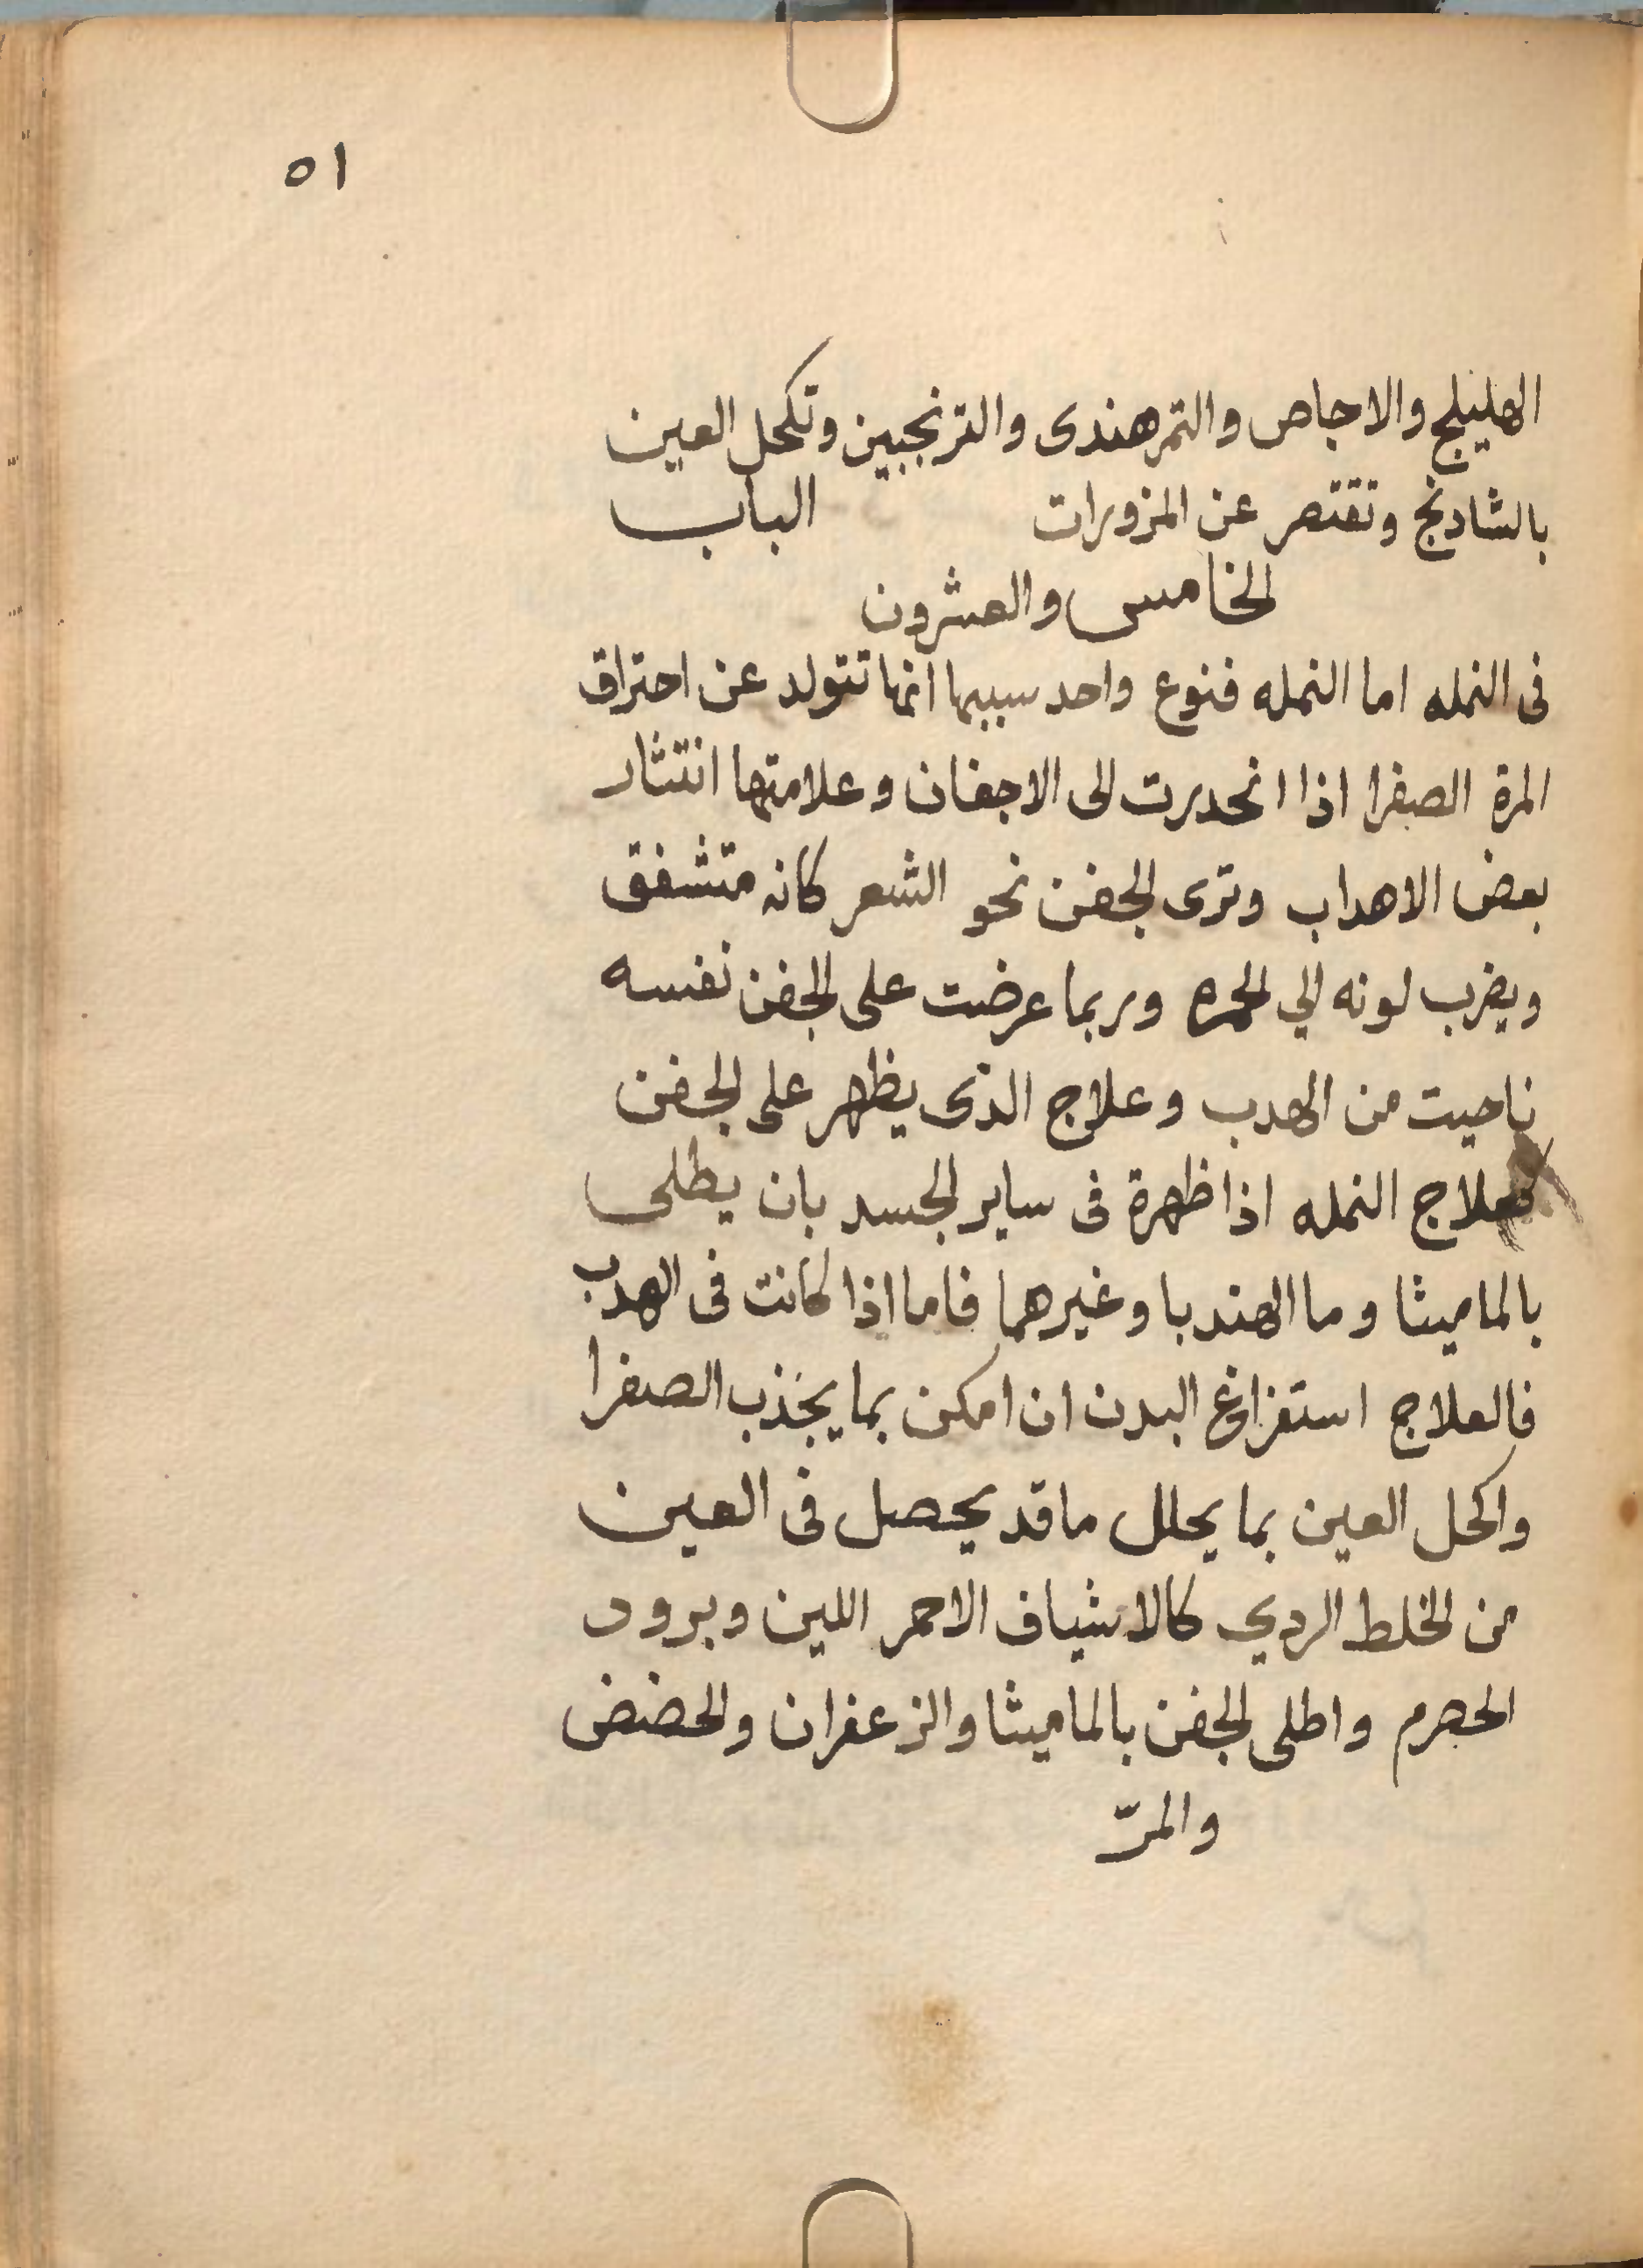 ٥١
الهليلج والاجاص والتمرهندى والترنجبين وتكحل العين
بالشادنج وتقتصر عن المزورات الباب
الخامس والعشرون
فى النمله اما النمله فنوع واحد سببها انها تتولد عن احتراق
المرة الصفرا اذا انحدرت الى الاجفان وعلامتها انتثار
بعض الاهداب وترى الجفن نحو الشعر كانه متشفق
ويضرب لونه الي الحمره وربما عرضت على الجفن نفسه
ناحيت من الهدب وعلاج الذى يظهر على الجفن
فعلاج النمله اذا ظهرة فى ساير الجسد بان يطلى
بالماميثا وما الهندبا وغيرهما فاما اذا كانت فى الهدب
فالعلاج استفراغ البدن ان امكن بما يجذب الصفرا
واكحل العين بما يحلل ما قد يحصل فى العين
من الخلط الردي كالاشياف الاحمر اللين وبرود
الحصرم واطلى الجفن بالماميثا والزعفران والحضض
والمرّ